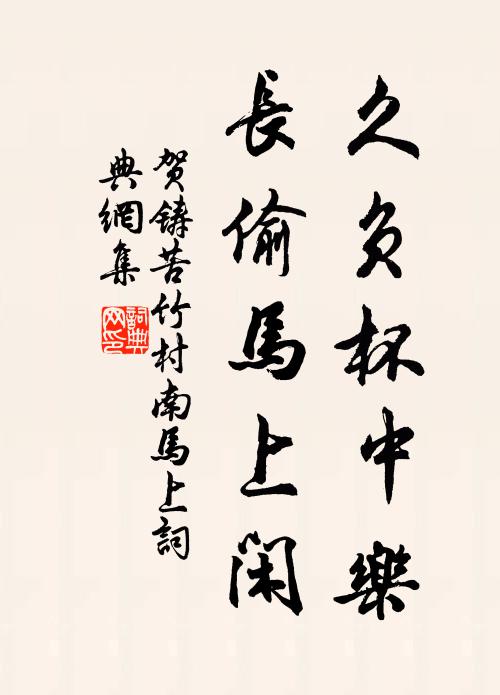 久负杯中樂
長偷馬上閑
贺鑄苦竹村南馬上詞
典網集
詞典网印